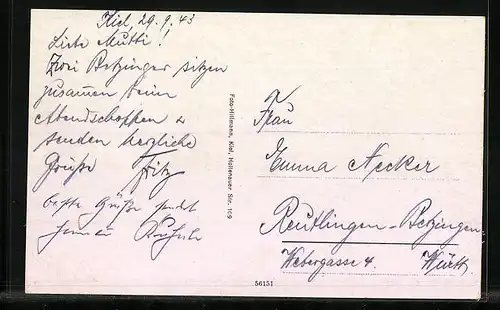 Kiel, 29.9.43
Liebe Mutti!
Zwei Betzinger sitzen
zusamen beim
Abendschoppen u
senden herzliche
Grüße Fritz
beste Grüße sendet
Foto-Hillmann, Kiel, Holtenauer Str. 169
Frau
Emma Necker
Reutlingen-Betzingen
Webergasse 4. Württ
56151